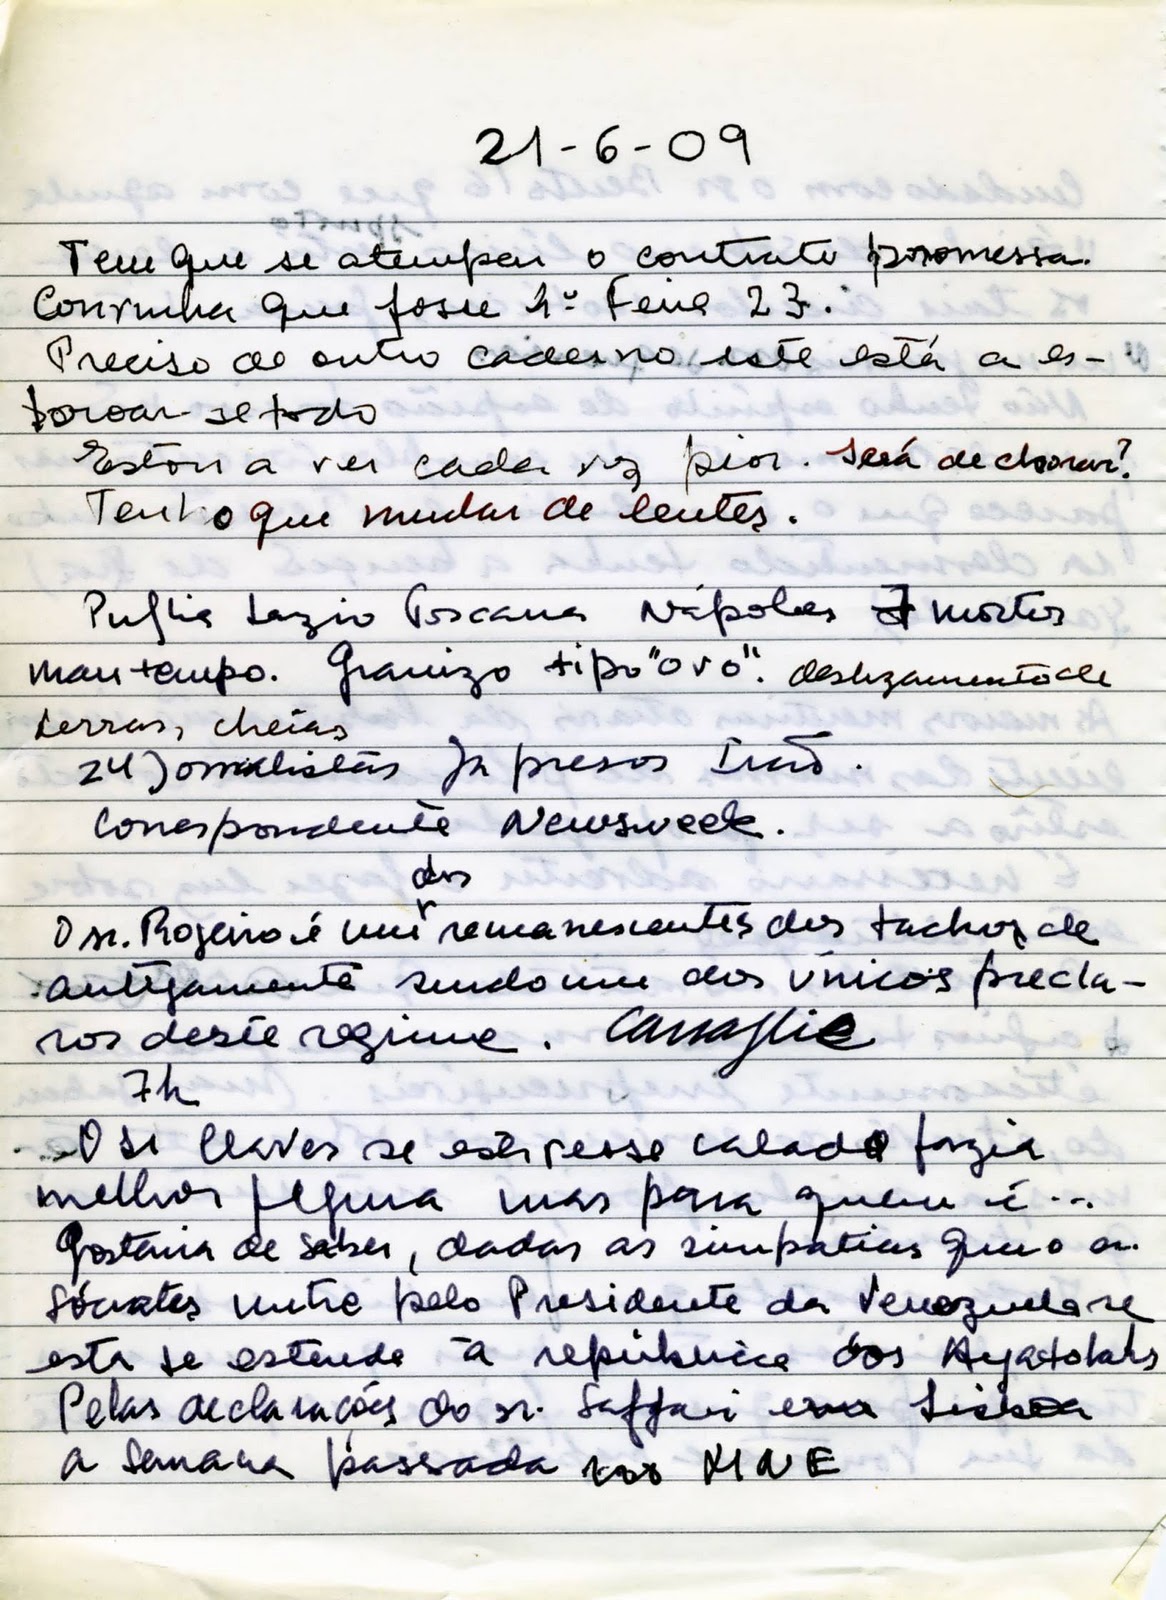 21-6-09
Tem que se atempar o contrato promessa.
Convinha que fosse Feira 23.
Preciso de outro caderno este está a es-
boroar-se todo
Estou a ver cada vez pior. Será de chorar?
Tenho que mudar de lentes.
Puglia Lazio Toscana Nápoles 7 mortos
mau tempo. Granizo tipo "ovo". deslizamento de
terras, cheias
24 Jornalistas já presos Irão.
Correspondente Newsweek.
dos
O sr. Rogeiro é um remanescentes dos tachos de
antigamente sendo um dos únicos precla-
ros deste regime.
7h
O sr Chaves se estivesse calado fazia
melhor figura mas para quem é...
Gostaria de saber, dadas as simpatias que o sr.
Sócrates nutre pelo Presidente da Venezuela se
esta se estende à república dos Ayatolahs
Pelas declarações do sr. Saffari em Lisboa
a semana passada nos MNE